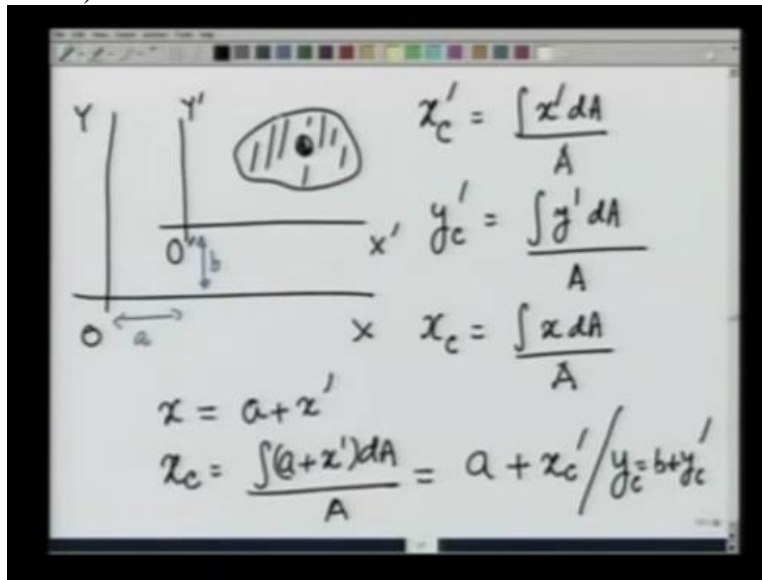 Y Y'
O' b X'
O a X
x'c = ∫x' dA / A
y'c = ∫y' dA / A
xc = ∫x dA / A
x = a + x'
xc = ∫(a+x')dA / A = a + xc' / yc = b + yc'